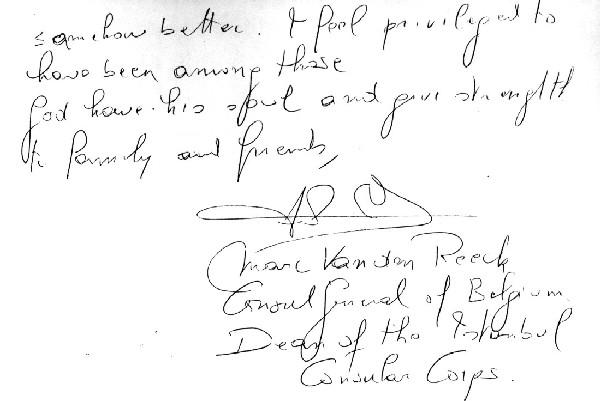 somehow better. I feel privileged to
have been among those
God have his soul and give strength
to family and friends,
Marc Van den Reeck
Consul General of Belgium.
Dean of the Istanbul
Consular Corps.